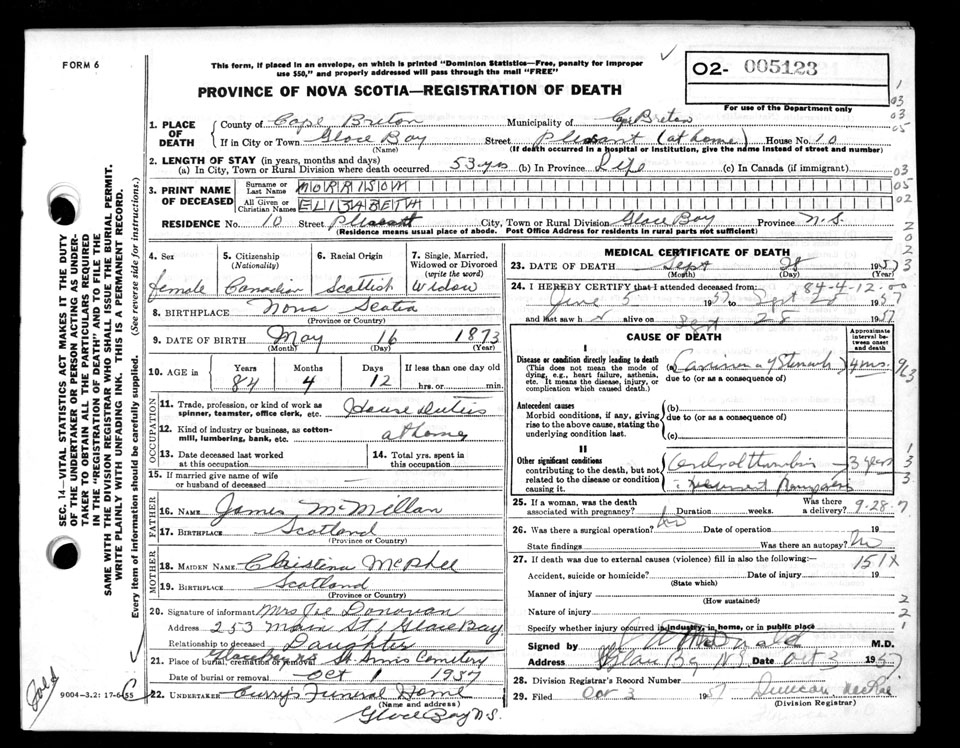 FORM 6
This form, if placed in an envelope, on which is printed "Dominion Statistics—Free, penalty for improper
use $50," and properly addressed will pass through the mail "FREE"
O2- 005123
For use of the Department only
PROVINCE OF NOVA SCOTIA—REGISTRATION OF DEATH
1. PLACE OF DEATH
County of Cape Breton Municipality of Cape Breton
If in City or Town Glace Bay Street Pleasant (at home) House No. 10
(Name) (If death occurred in a hospital or institution, give the name instead of street and number)
2. LENGTH OF STAY (in years, months and days)
(a) In City, Town or Rural Division where death occurred 53 yrs (b) In Province Life (c) In Canada (if immigrant)
3. PRINT NAME OF DECEASED
Surname or Last Name MORRISON
All Given or Christian Names ELIZABETH
RESIDENCE No. 10 Street Pleasant City, Town or Rural Division Glace Bay Province N.S.
(Residence means usual place of abode. Post Office Address for residents in rural parts not sufficient)
4. Sex female
5. Citizenship (Nationality) Canadian
6. Racial Origin Scottish
7. Single, Married, Widowed or Divorced (write the word) Widow
8. BIRTHPLACE Nova Scotia
(Province or Country)
9. DATE OF BIRTH May 16 1873
(Month) (Day) (Year)
10. AGE in Years 84 Months 4 Days 12 If less than one day old
hrs. or min.
OCCUPATION
11. Trade, profession, or kind of work as spinner, teamster, office clerk, etc. House Duties
12. Kind of industry or business, as cotton-mill, lumbering, bank, etc. at home
13. Date deceased last worked at this occupation
14. Total yrs. spent in this occupation
15. If married give name of wife or husband of deceased —
FATHER
16. Name James McMillan
17. BIRTHPLACE Scotland
(Province or Country)
MOTHER
18. MAIDEN NAME Christina McPhee
19. BIRTHPLACE Scotland
(Province or Country)
20. Signature of informant Mrs Joe Donovan
Address 253 Main St, Glace Bay
Relationship to deceased Daughter
21. Place of burial, cremation or removal St. Anns Cemetery
Date of burial Oct 1 1957
22. UNDERTAKER Curry's Funeral Home
(Name and address)
Glace Bay N.S.
MEDICAL CERTIFICATE OF DEATH
23. DATE OF DEATH Sept 28 1957
(Month) (Day) (Year)
84-4-12-00
24. I HEREBY CERTIFY that I attended deceased from:
June 5 1957 Sept 1957
and last saw h alive on Sept 28 1957
CAUSE OF DEATH
Approximate interval between onset and death
I
Disease or condition directly leading to death
(This does not mean the mode of dying, e.g., heart failure, asthenia, etc. It means the disease, injury, or complication which caused death.)
(a) Carcinoma of Stomach 4 mos.
due to (or as a consequence of)
Antecedent causes
Morbid conditions, if any, giving rise to the above cause, stating the underlying condition last.
(b)
due to (or as a consequence of)
(c)
II
Other significant conditions
contributing to the death, but not related to the disease or condition causing it.
Cerebral thrombosis 3 years
25. If a woman, was the death associated with pregnancy? Duration weeks. Was there a delivery?
9-28-7
26. Was there a surgical operation? no Date of operation 19
State findings Was there an autopsy? No
27. If death was due to external causes (violence) fill in also the following:—
151X
Accident, suicide or homicide? Date of injury 19
(State which)
Manner of injury
(How sustained)
Nature of injury
Specify whether injury occurred in industry, in home, or in public place
Signed by M.D.
Address Glace Bay N.S. Date Oct 3 1957
28. Division Registrar's Record Number
29. Filed Oct 3 1957 Duncan
(Division Registrar)
SEC. 14—VITAL STATISTICS ACT MAKES IT THE DUTY
OF THE UNDERTAKER OR PERSON ACTING AS UNDER-
TAKER TO OBTAIN ALL THE PARTICULARS REQUIRED
IN THE "REGISTRATION OF DEATH" AND TO FILE THE
SAME WITH THE DIVISION REGISTRAR WHO SHALL ISSUE THE BURIAL PERMIT.
WRITE PLAINLY WITH UNFADING INK. THIS IS A PERMANENT RECORD.
Every item of information should be carefully supplied. (See reverse side for instructions.)
9004-3.2: 17-6-55